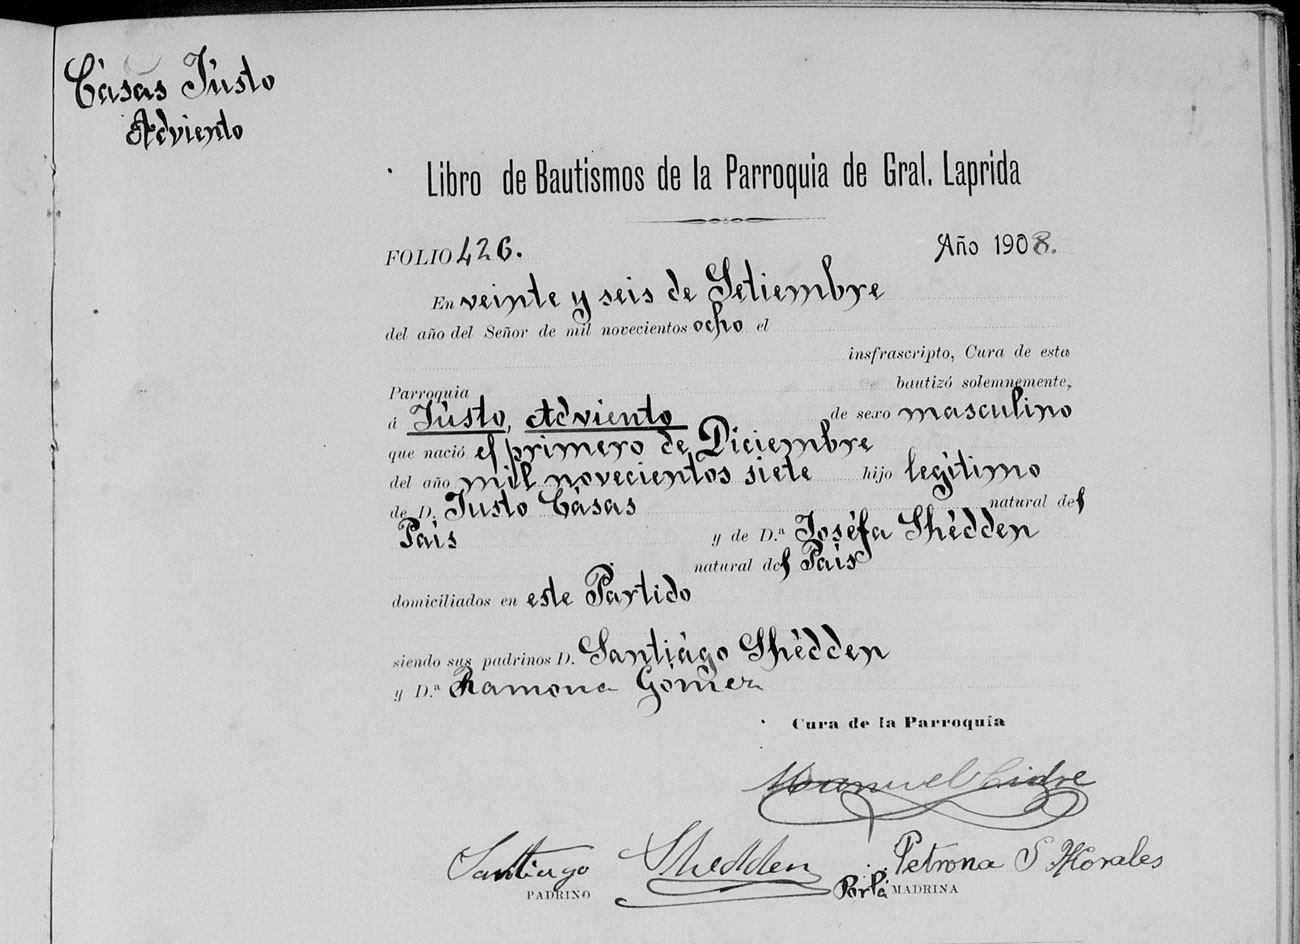 Casas Justo
Adviento
Libro de Bautismos de la Parroquia de Gral. Laprida
FOLIO 426.
Año 1908.
En veinte y seis de Setiembre
del año del Señor de mil novecientos ocho el
insfrascripto, Cura de esta
Parroquia bautizó solemnemente,
á Justo, Adviento de sexo masculino
que nació el primero de Diciembre
del año mil novecientos siete hijo legítimo
de D. Justo Cásas natural del
País y de D.ª Joséfa Shèdden
natural del País
domiciliados en este Partido
siendo sus padrinos D. Santiágo Shèdden
y D.ª Ramona Gómez
Cura de la Parroquia
Manuel Cidre
Santiago Shedden Petrona S Morales
PADRINO Por la MADRINA